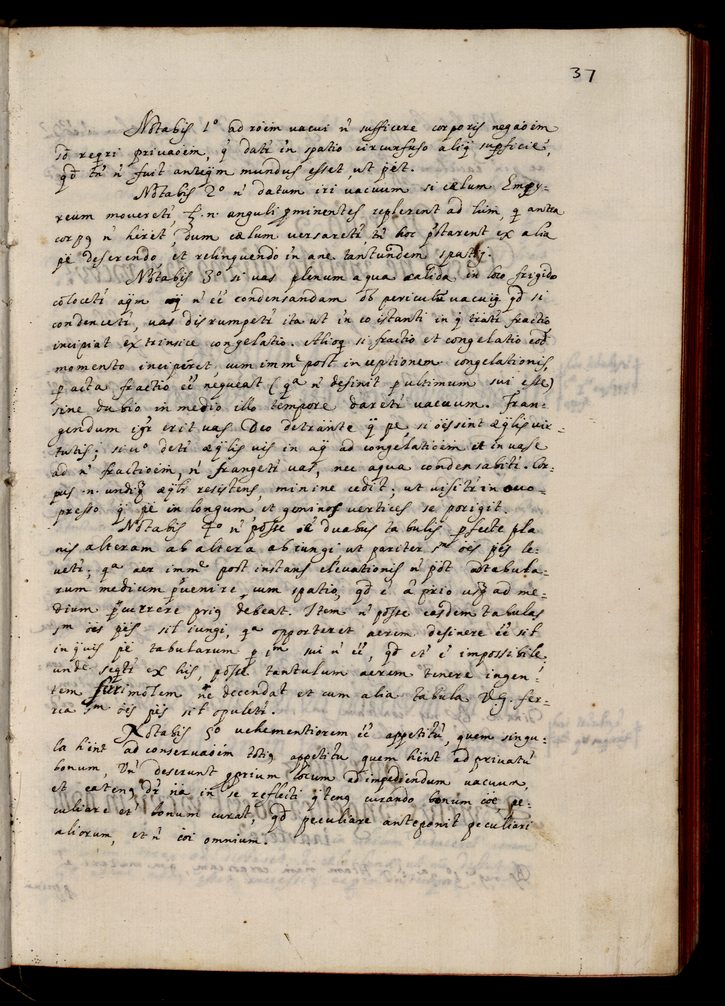 37
Notabis 1º ad rõem vacui n̄ sufficere corporis negaõem
sed reqri privaõem, q̄ dati in spatio circunfuso aliq̄ supficiē,
qd̄ tn̄ n̄ fuit anteqm̄ mundus esset, ut pet.
Notabis 2º n̄ datum iri vacuum si cælum Empy-
reum movereti, anguli pminentes replerent ad lum, q antea
corpꝯ n̄ hēret, dum cælum versareti tn̄ hoc pstarent ex alia
pē deserendo et relinquendo in ane tantundem spatij.
Notabis 3º si vas plenum aqua calida in loco frigido
coloceti aqm̄ n̄ eē condensandam ob periculū vacui, qd̄ si
condenceti, vas disrumpeti ita ut in eo istanti in q̄ trati fractio
incipiat extrinsice congelatio. Alioq si fractio et congelatio eod̄
momento inciperet, cum imm̄e post inceptionem congelationis,
pacta fractio eē nequeat (qa n̄ desinit p ultimum sui esse)
sine dubio in medio illo tempore dareti vacuum. Fran-
gendum igr̄ erit vas Deo detrante q̄ pē si oēs sint æqlis vir-
tutis; si vº deti æqlis vis in aq̄ ad congelatioēm et in vase
ad n̄ fractioēm, n̄ frangeti vas, nec aqua condensabiti. Cor-
pus n. undiq æqlr̄ resistens, minime cedit; ut visiti in ovo
presso q̄ pē in longum et geminos vertices se porigit.
Notabis 4º n̄ posse duabus tabulis pfecte pla-
nis alteram ab altera abiungi ut pariter sm̄ oēs pēs le-
veti; qa aer imm̄e post instans elevationis n̄ pōt ad tabula-
rum medium pvenire, cum spatio, qd̄ ē a prio usq ad me-
dium pcurrere priꝯ debeat. Item n̄ posse easdem tabulas
sm̄ oēs pēs sil iungi, qa opporteret aerem desinere eē sil
in q̄vis pē tabularum p im̄ sui n̄ eē, qd̄ et ē impossibile,
unde seqti ex his, posse tantulum aerem tenere ingen-
tem molem ne decendat et cum alia tabula V.G. fer-
rea sm̄ oēs pēs sil copuleti.
Notabis 5º vehementiorem eē appetitū, quem singu-
la hēnt ad conservaõem totiꝯ appetitu quem hēnt ad privatū
bonum, Un̄ deserunt pprium locum ad impediendum vacuum,
et eatenꝯ dr̄ na in se reflecti q̄tenꝯ curando bonum cōe, pe-
culiare et̄ bonum curat, qd̄ peculiare anteponit peculiari
aliorum, et n̄ cōi omnium.